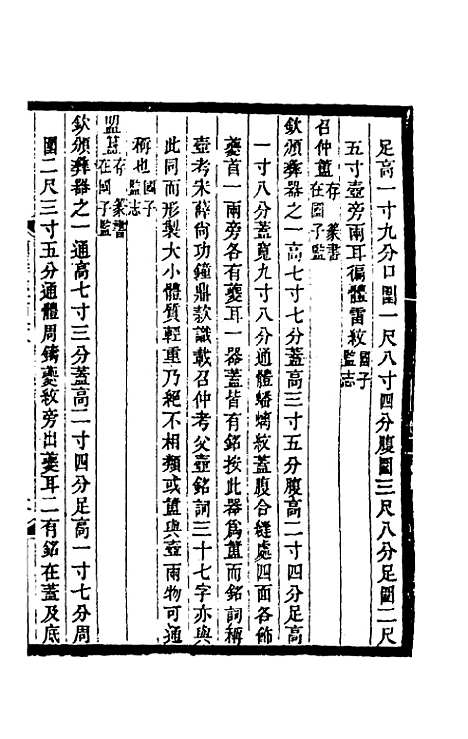 足高一寸九分口圍一尺八寸四分腹圍三尺八分足圍二尺
五寸壺旁兩耳徧體雷紋國子監志
召仲簠存篆書在國子監
欽頒彝器之一高七寸七分蓋高三寸五分腹高二寸四分足高
一寸八分蓋寬九寸八分通體蟠螭紋蓋腹合縫處四面各飾
夔首一兩旁各有夔耳一器蓋皆有銘按此器爲簠而銘詞稱
壺考宋薛尙功鐘鼎款識載召仲考父壺銘詞三十七字亦與
此同而形製大小體質輕重乃絕不相類或簠與壺兩物可通
稱也國子監志
盟簋存篆書在國子監
欽頒彝器之一通高七寸三分蓋高二寸四分足高一寸七分周
圍二尺三寸五分通體周鑄夔紋旁出夔耳二有銘在蓋及底